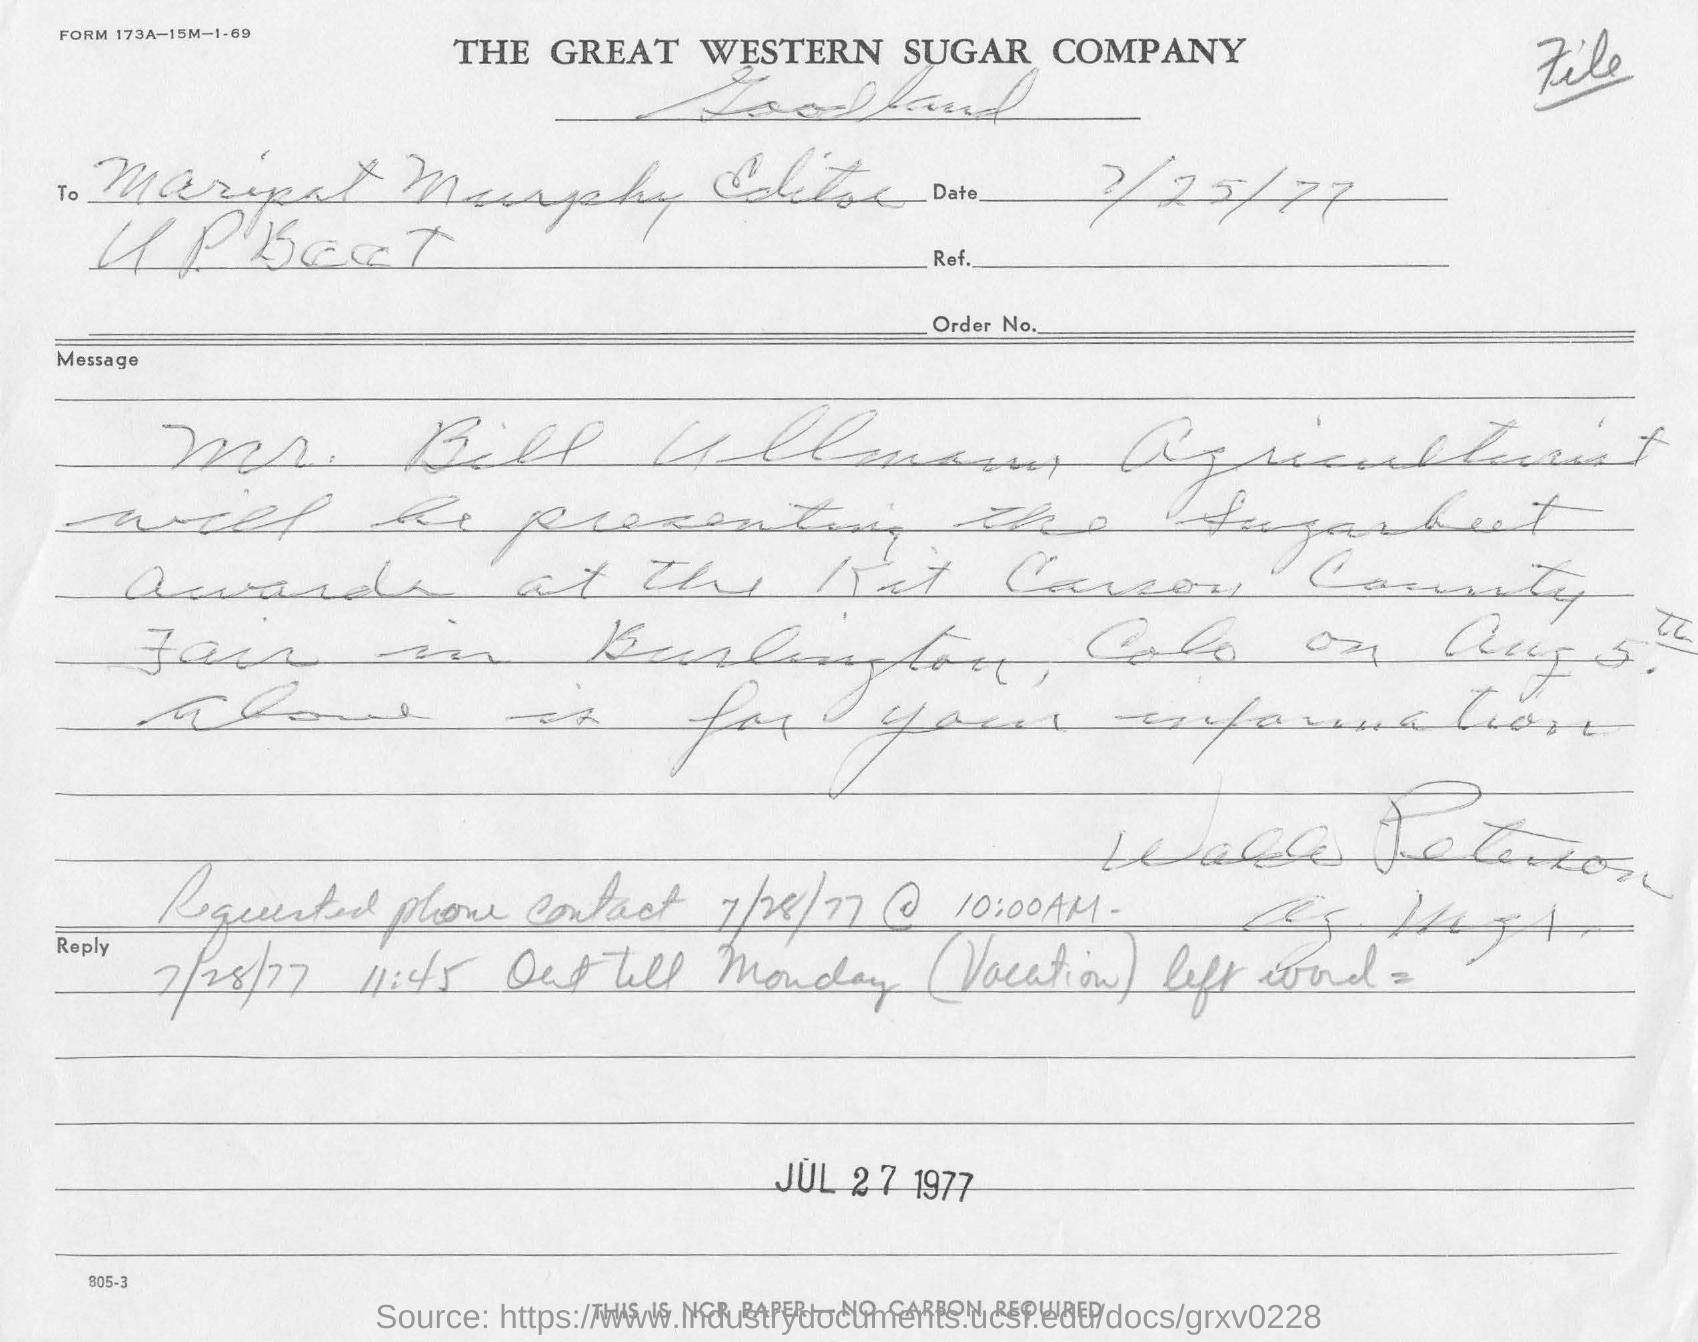 FORM 173A—15M—1-69
THE GREAT WESTERN SUGAR COMPANY
File
Goodland
To Maripat Murphy Editor Date 7/25/77
U P. Beet Ref.
Order No.
Message
Mr. Bill Ullmann, Agriculturist
will be presenting the Sugarbeet
awards at the Kit Carson County
Fair in Burlington, Colo on Aug 5th.
Above is for your information
Waldo Peterson
Requested phone contact 7/28/77 @ 10:00AM- Ag. Mgr.
Reply
7/28/77 11:45 Out till Monday (Vacation) left word =
JUL 27 1977
805-3
THIS IS NCR PAPER—NO CARBON REQUIRED
Source: https://www.industrydocuments.ucsf.edu/docs/grxv0228